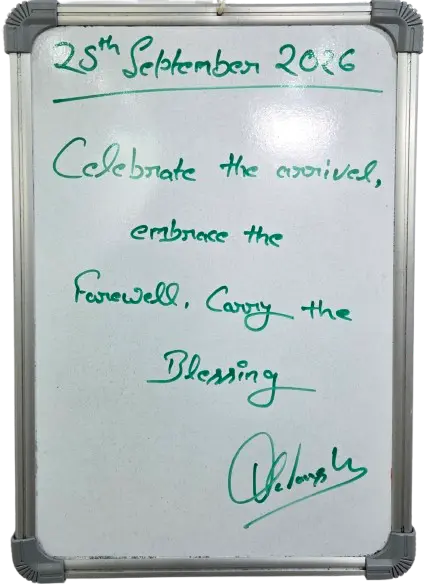 25th September 2026
Celebrate the arrival,
embrace the
Farewell, Carry the
Blessing